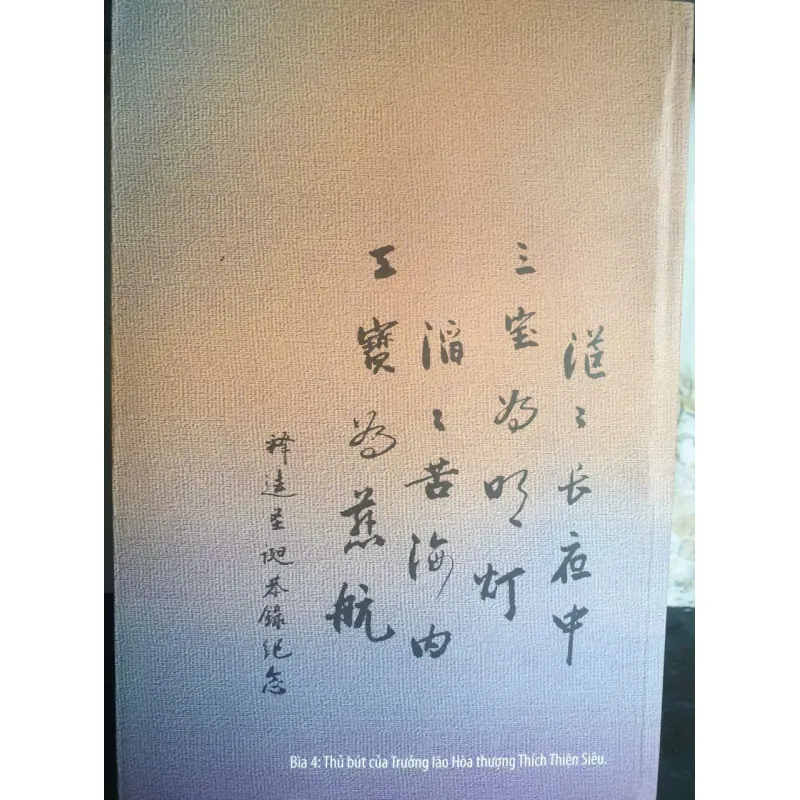 茫〻长夜中
三宝为明灯
滔〻苦海内
三寶为慈航
释恭錄纪念
Bìa 4: Thủ bút của Trưởng lão Hòa thượng Thích Thiện Siêu.